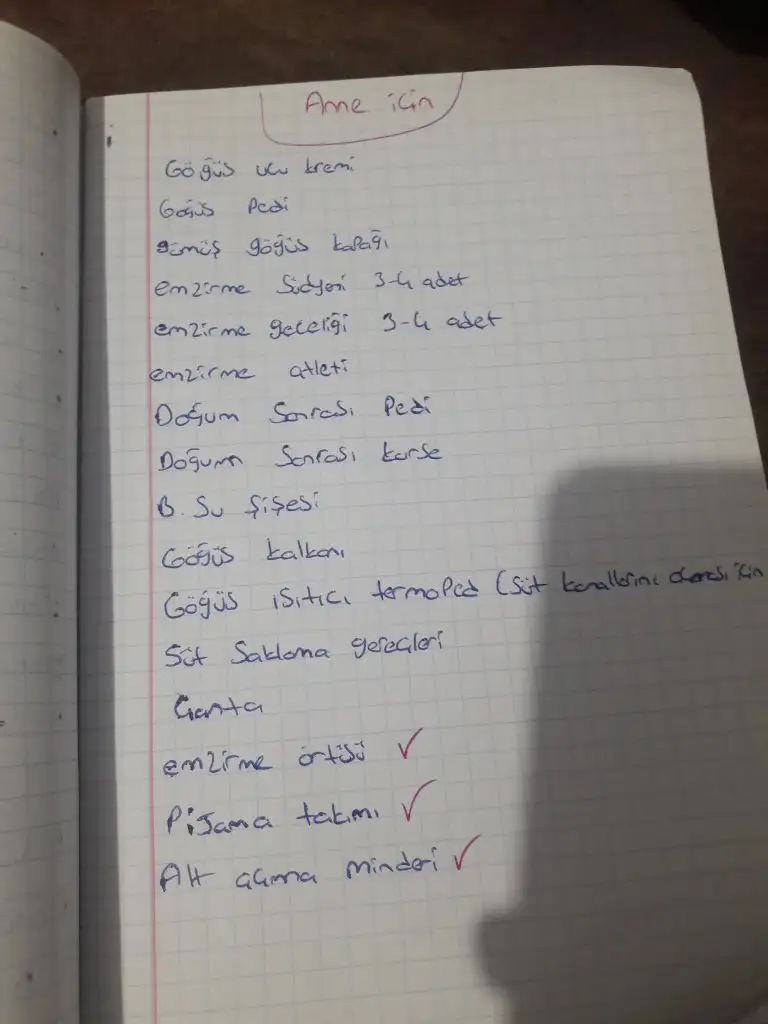 Anne için
Göğüs ucu kremi
Göğüs Pedi
gümüş göğüs kapağı
emzirme Südyeni 3-4 adet
emzirme geceliği 3-4 adet
emzirme atleti
Doğum Sonrası Pedi
Doğum Sonrası korse
B. Su Şişesi
Göğüs kalkanı
Göğüs ısıtıcı termoPed (Süt kanallarını açması için
Süt Saklama gereçleri
Çanta
emzirme örtüsü ✓
Pijama takımı ✓
Alt açma minderi ✓